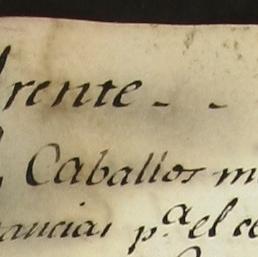 frente - -
Caballos m
ancias p.ª el ce